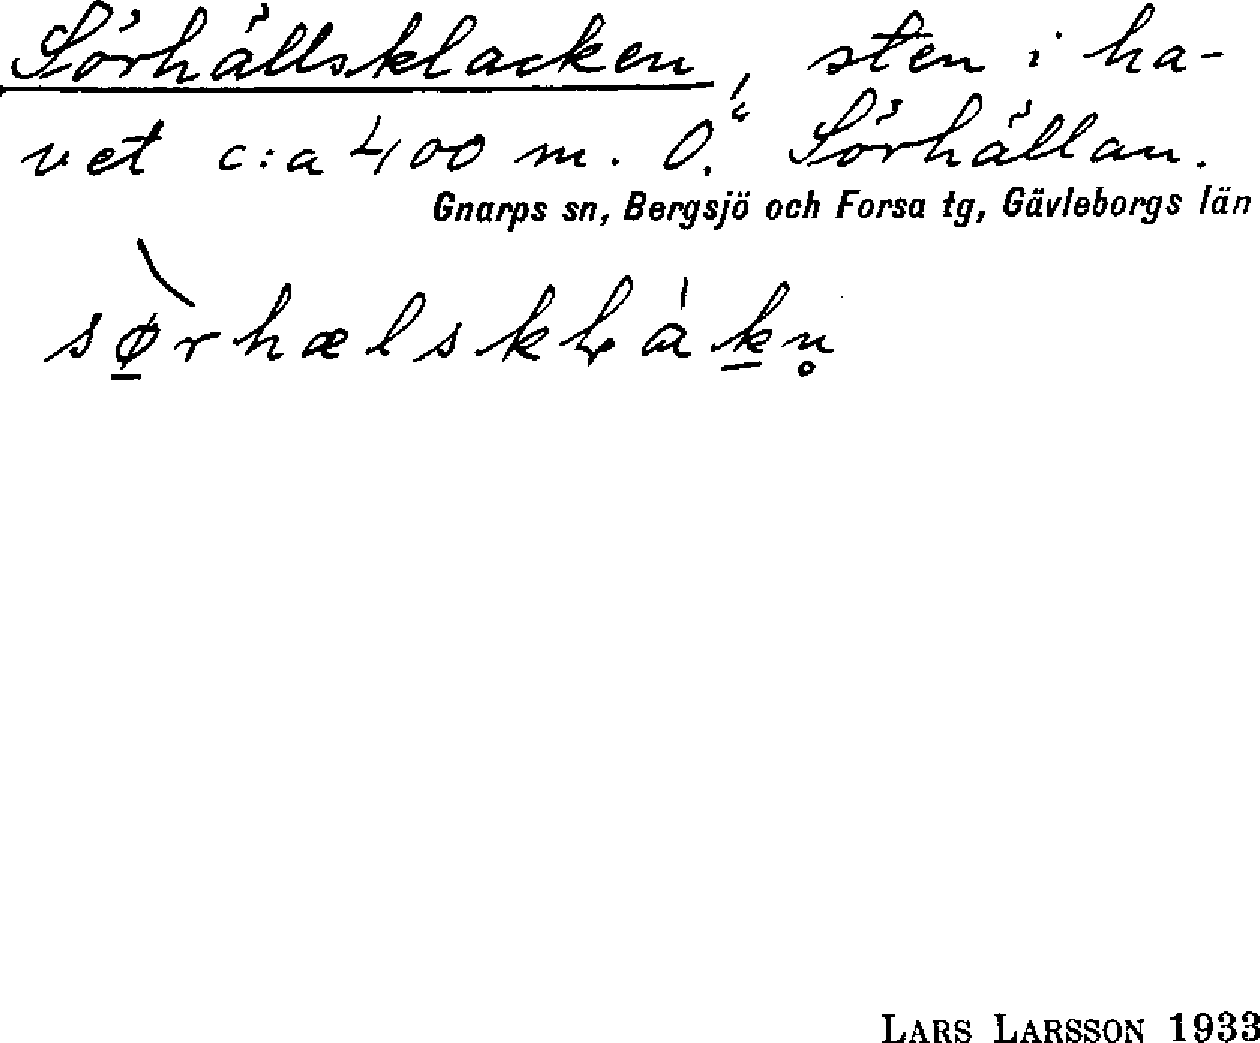 Sörhällsklacken, sten i ha-
vet c:a 400 m. Ö. Sörhällan.
Gnarps sn, Bergsjö och Forsa tg, Gävleborgs län
LARS LARSSON 1933